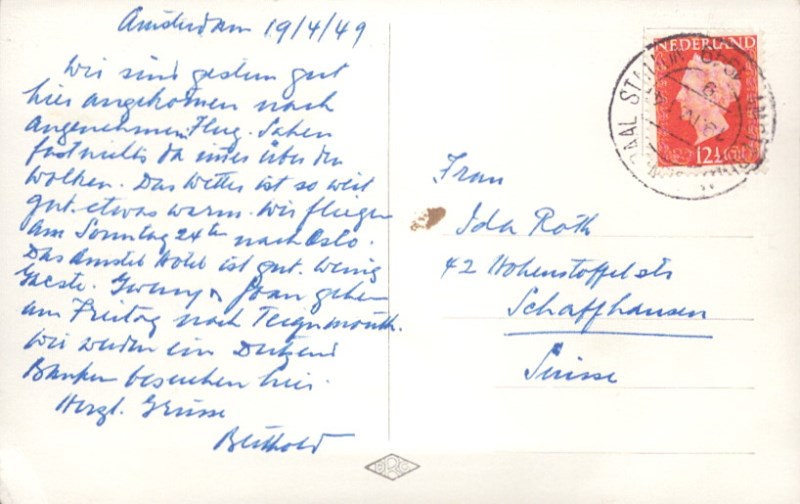 Amsterdam 19/4/49
Wir sind gestern gut
hier angekommen nach
angenehmen Flug. Sahen
fast nichts da über den
Wolken. Das Wetter ist so weit
gut. etwas warm. Wir fliegen
am Sonntag 24ten nach Oslo.
Das Amstel Hotel ist gut. Wenig
Gäste. & Joan gehen
am Freitag nach Teignmouth.
Wir werden ein Dutzend
Banken besuchen hier.
Herzl. Grüsse
Berthold
NEDERLAND
12½
Frau
Ida Roth
42 Hohenstoffelstr
Schaffhausen
Suisse